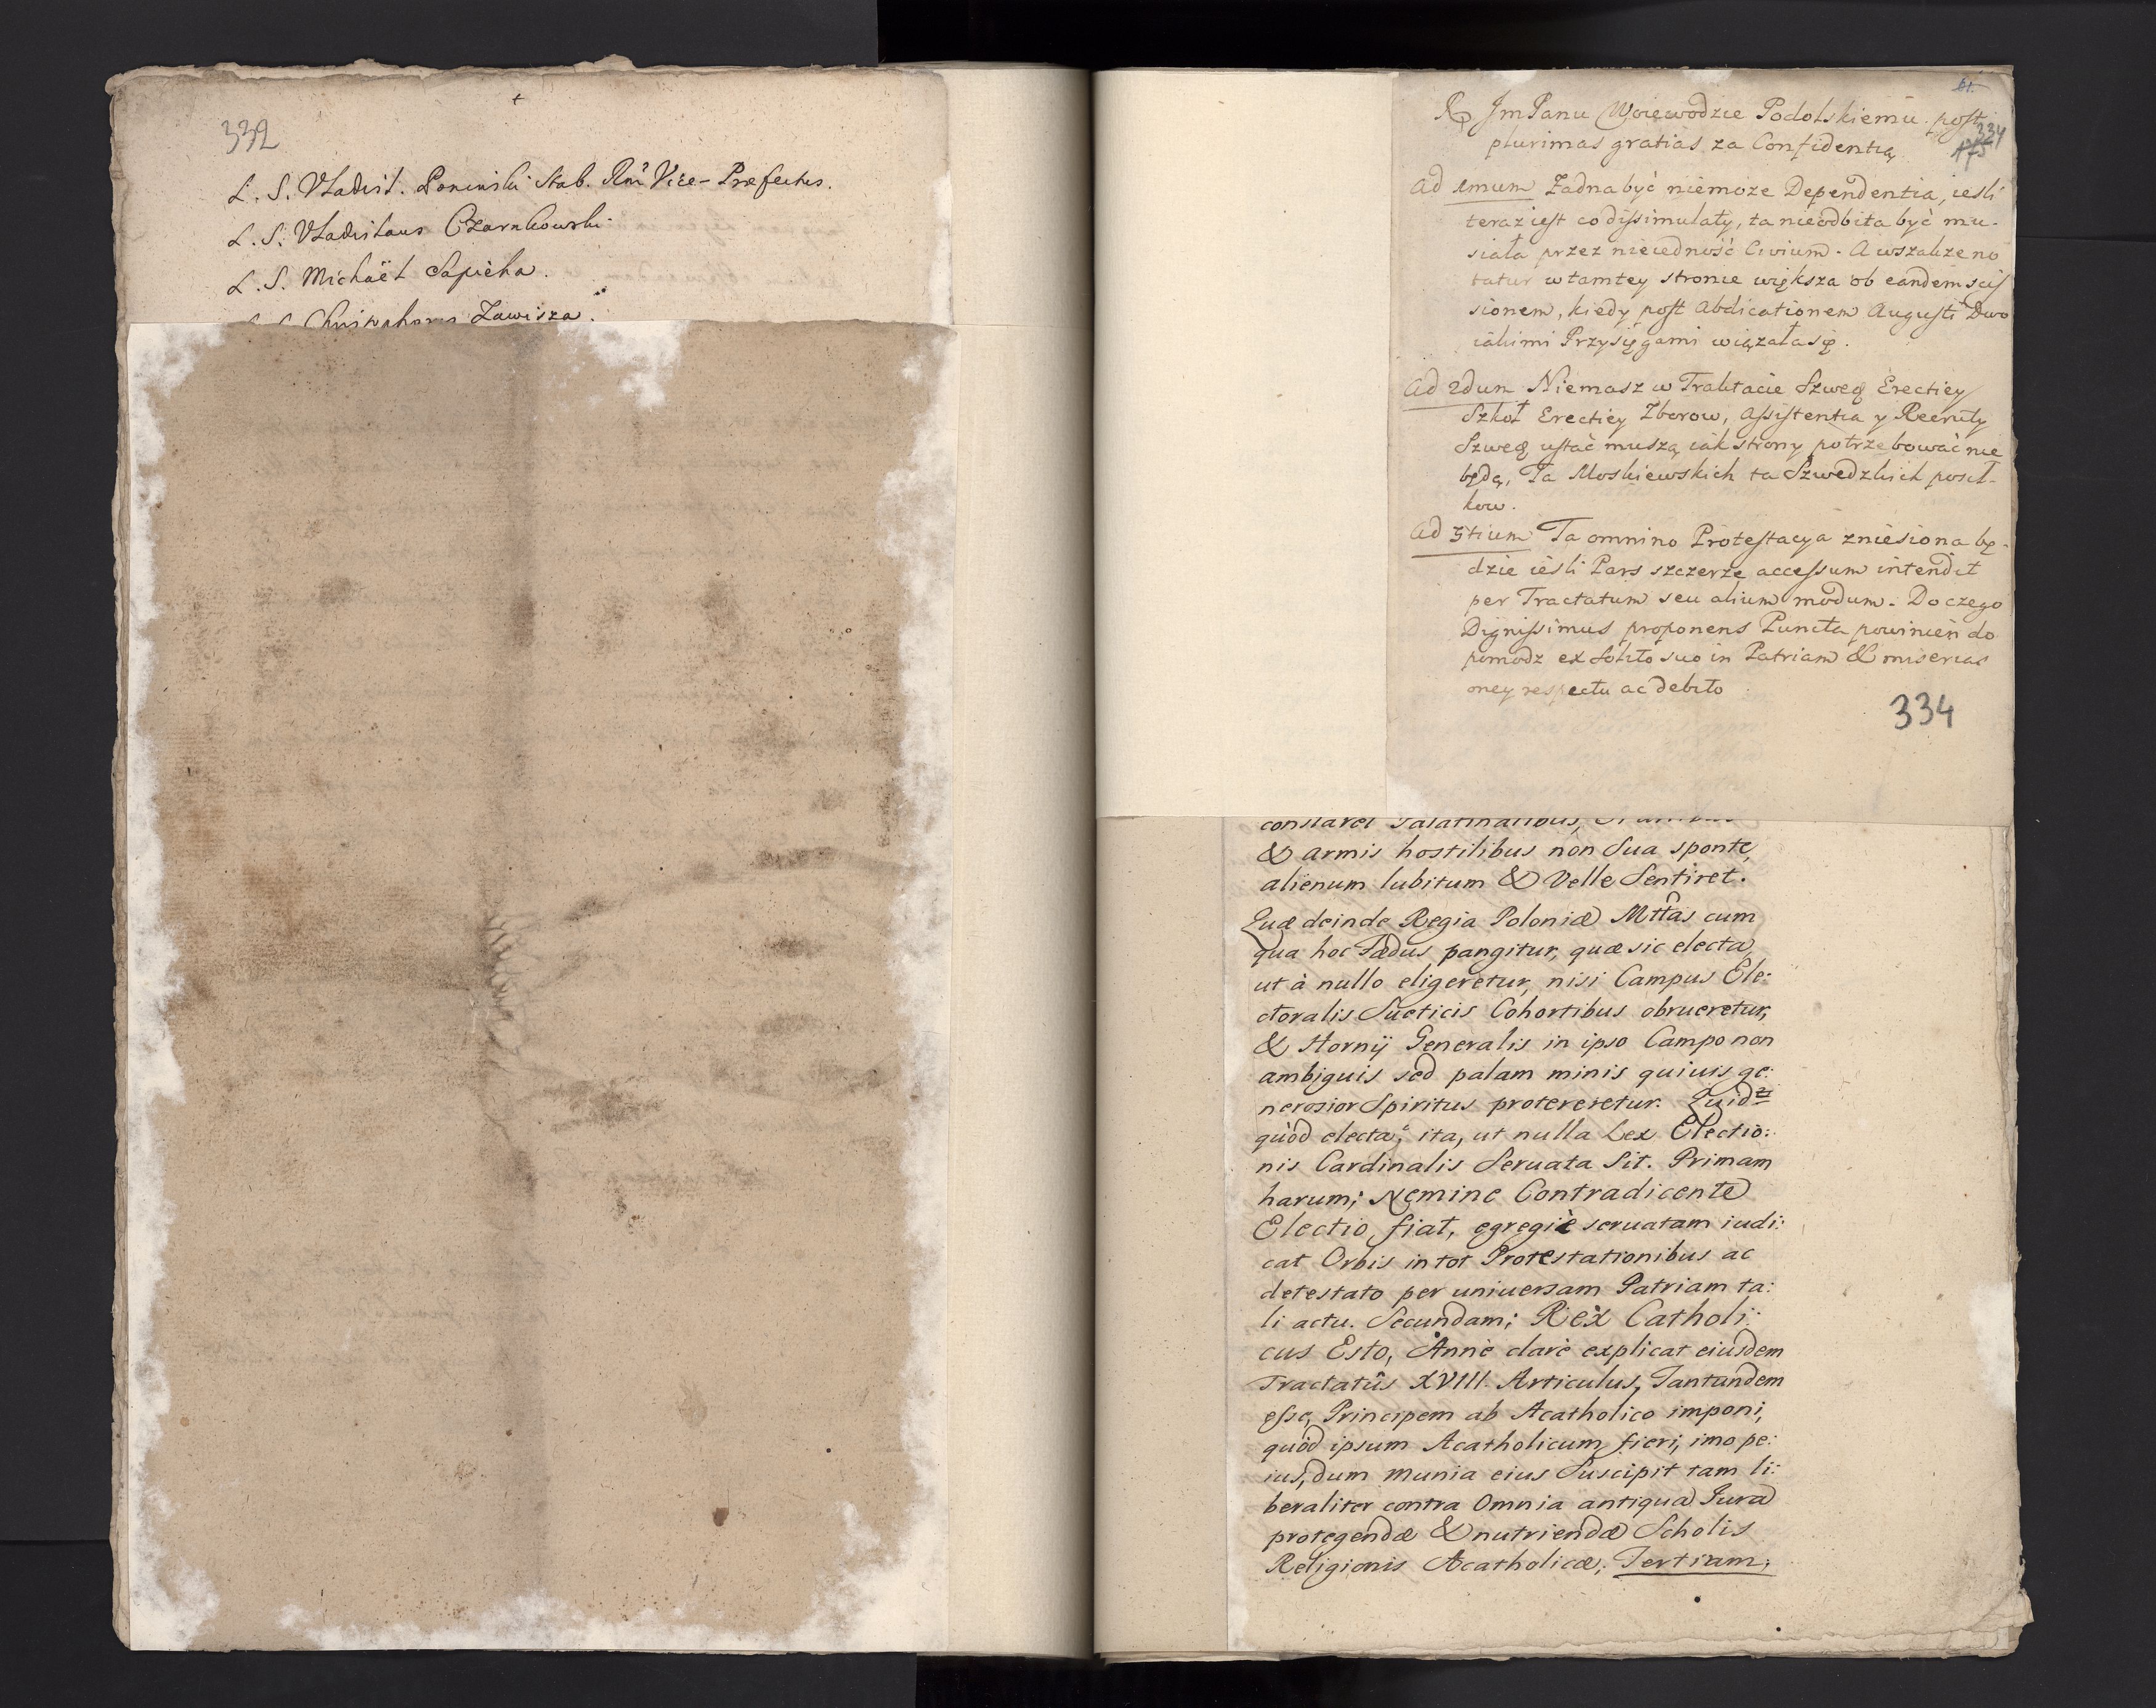 332
L. S. Vladisl. Poninski Stab. Rni Vice-Præfectus.
L. S. Vladislaus Czarnkowski
L. S. Michaël Sapieha.
Zawisza.
61.
JmPanu Woiewodzie Podolskiemu. post
334
plurimas gratias za Confidentią
175
Ad 1mum Żadna być niemoże Dependentia, iesli
teraz iest co dissimulaty, ta nieodbita być mu-
siała przez nieiedność Civium. A wszakże no
tatur w tamtey stronie większa ob eandem scis
sionem, kiedy post Abdicationem Augusti Dwo
iakimi Przysięgami wiązała się.
Ad 2dum Niemasz w Traktacie Szweg Erectiey
Szkoł Erectiey Zborow, Assistentia y Recruty
Szweg ustać muszą iak strony potrzebować nie
będą, Ta Moskiewskich ta Szwedzkich posił-
kow.
Ad 3tium Ta omnino Protestacya zniesiona bę-
dzie ieśli Pars szczerze accessum intendit
per Tractatum seu alium modum. Do czego
Dignissimus proponens Puncta powinien do
pomodz ex solito suo in Patriam & miserias
oney respectu ac debito
334
& armis hostilibus non Sua sponte,
alienum lubitum & Velle Sentiret.
Quæ deinde Regia Poloniæ Mttas cum
qua hoc Fædus pangitur, quæ sic electa,
ut à nullo eligeretur, nisi Campus Ele:
ctoralis Sueticis Cohortibus obrueretur,
& Hornij Generalis in ipso Campo non
ambiguis sed palam minis quiuis ge:
nerosior Spiritus protereretur. Quid
quòd electa, ita, ut nulla Lex Electio:
nis Cardinalis Seruata Sit. Primam
harum; Nemine Contradicente
Electio fiat, egregiè seruatam iudi:
cat Orbis in tot Protestationibus ac
detestato per uniuersam Patriam ta:
li actu. Secundam; Rex Catholi:
cus Esto, Annè clarè explicat eiusdem
Tractatûs XVIII. Articulus, Tantundem
esse, Principem ab Acatholico imponi,
quòd ipsum Acatholicum fieri, imo pe:
ius, dum munia eius Suscipit tam li:
beraliter contra Omnia antiqua Jura
protegendæ & nutriendæ Scholis
Religionis Acatholicæ. Tertiam;